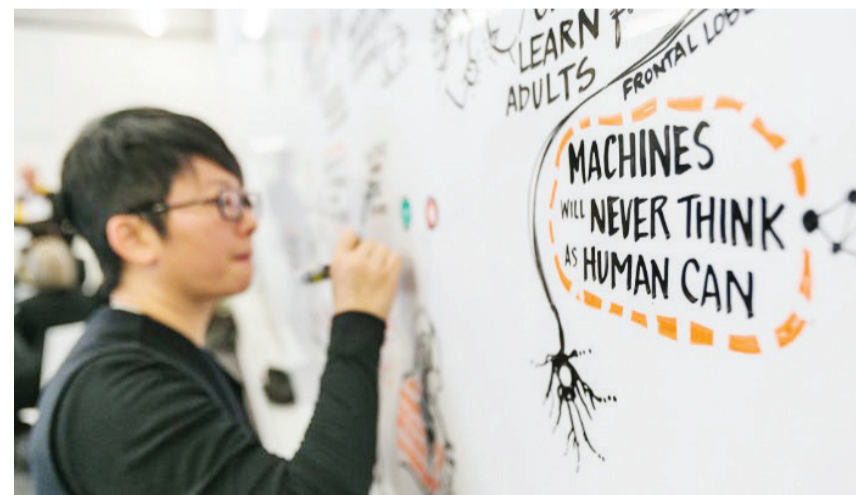 LEARN
ADULTS
FRONTAL LOBE
MACHINES
WILL NEVER THINK
AS HUMAN CAN